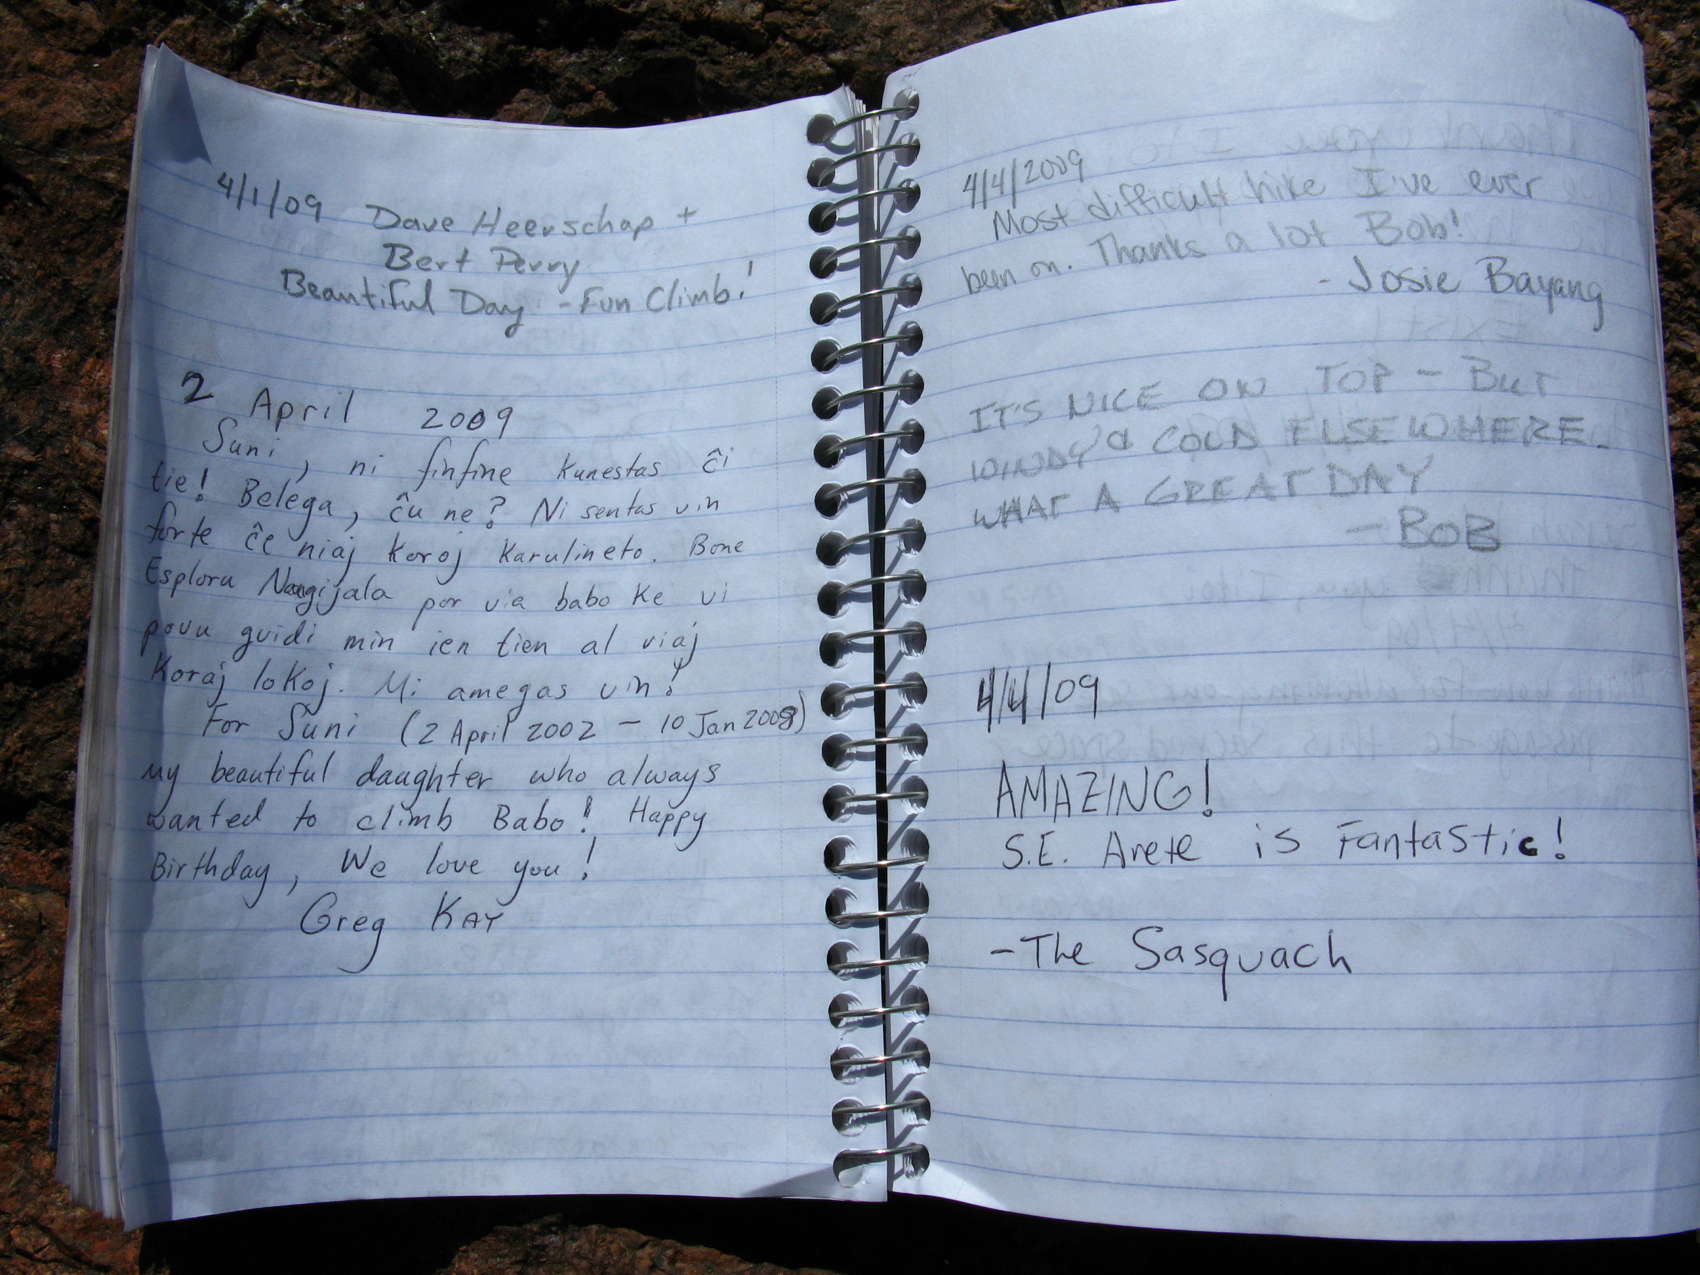 4/1/09 Dave Heerschap +
Bert Perry
Beautiful Day - Fun Climb!
2 April 2009
Suni, ni finfine kunestas ĉi
tie! Belega, ĉu ne? Ni sentas vin
forte ĉe niaj koroj karulineto. Bone
Esploru Nangijala por via babo ke vi
povu gvidi min ien tien al viaj
Koraj lokoj. Mi amegas vin!
For Suni (2 April 2002 - 10 Jan 2008)
my beautiful daughter who always
wanted to climb Babo! Happy
Birthday, We love you!
Greg KAY
4/4/2009
Most difficult hike I've ever
been on. Thanks a lot Bob!
- Josie Bayang
IT'S NICE ON TOP - BUT
WINDY & COLD ELSEWHERE.
WHAT A GREAT DAY
- BOB
4/4/09
AMAZING!
S.E. Arete is Fantastic!
- The Sasquach